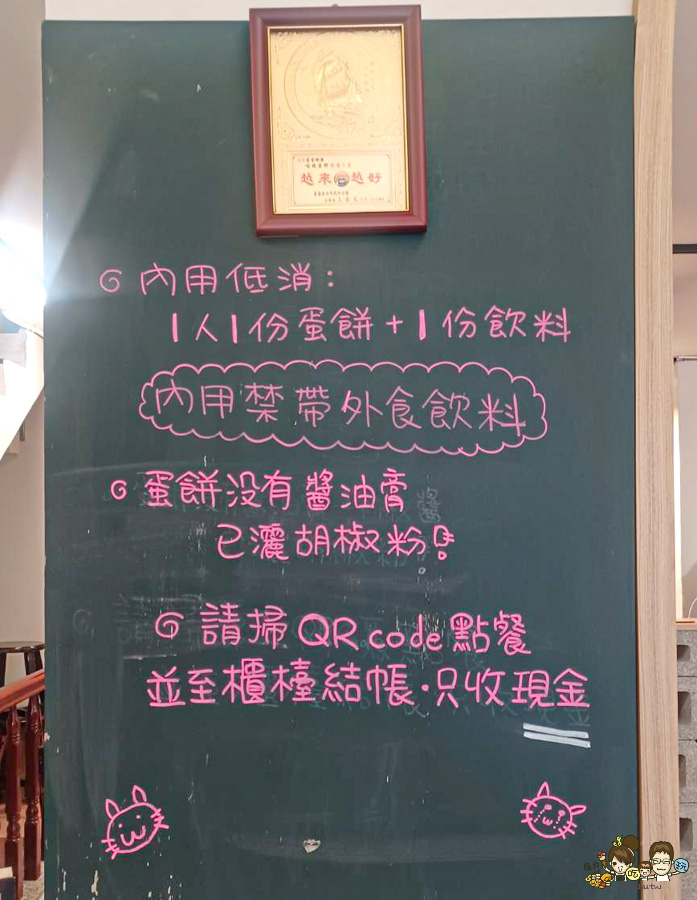 越來越好
內用低消:
1人1份蛋餅+1份飲料
內用禁帶外食飲料
蛋餅没有醬油膏
已灑胡椒粉!
請掃QR code點餐
並至櫃檯結帳·只收現金